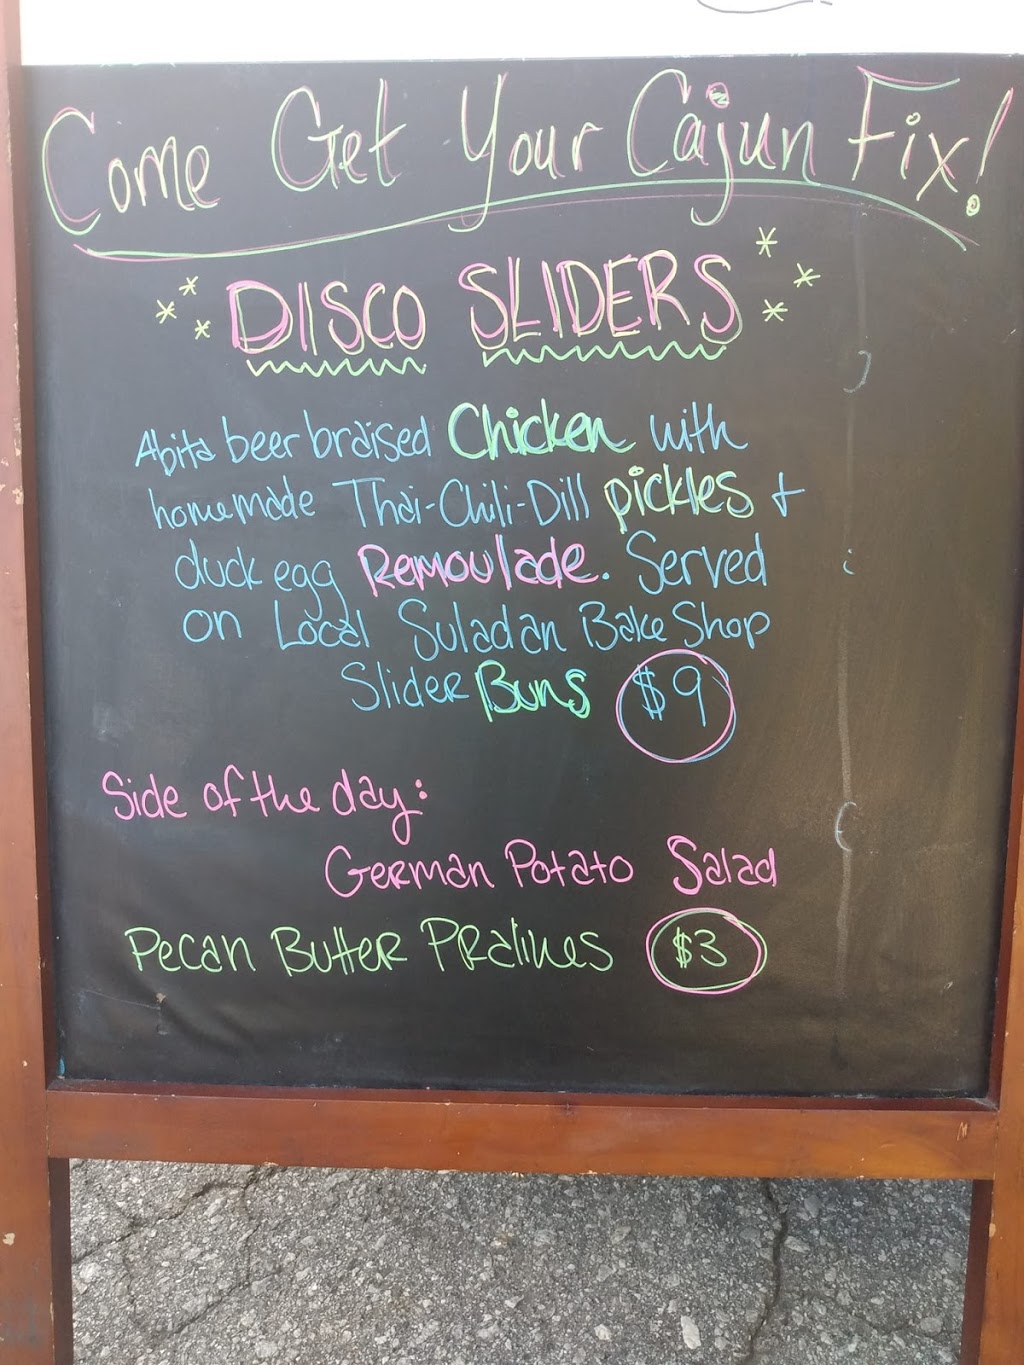 Come Get Your Cajun Fix!
DISCO SLIDERS
Abita beer braised Chicken with
homemade Thai-Chili-Dill pickles +
duck egg Remoulade. Served
on Local Suladan Bake Shop
Slider Buns $9
Side of the day:
German Potato Salad
Pecan Butter Pralines $3